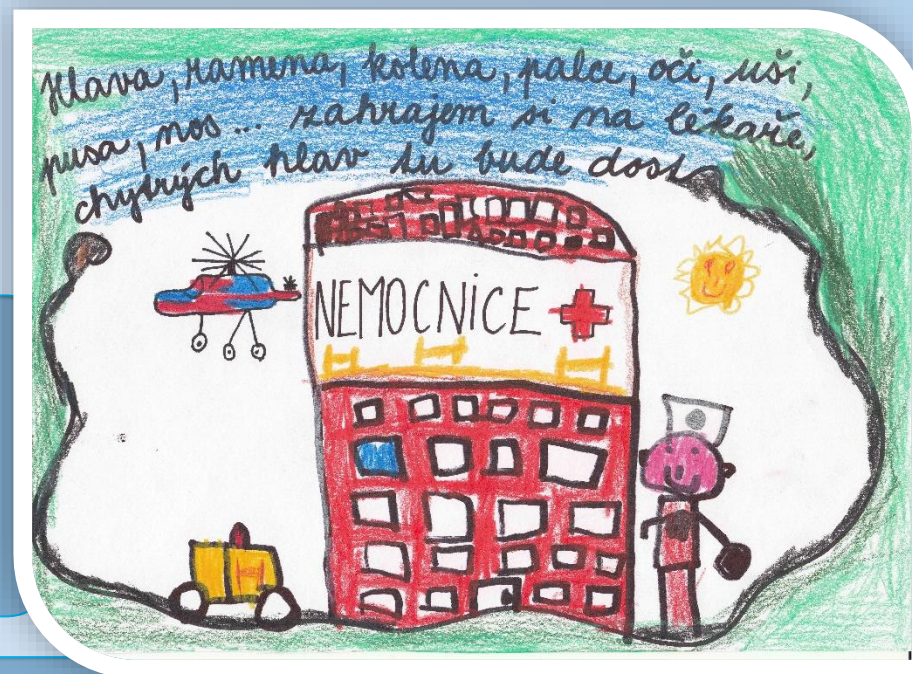 Hlava, ramena, kolena, palce, oči, uši,
pusa, nos ... zahrajem si na lékaře,
chytrých hlav tu bude dost
NEMOCNICE
H